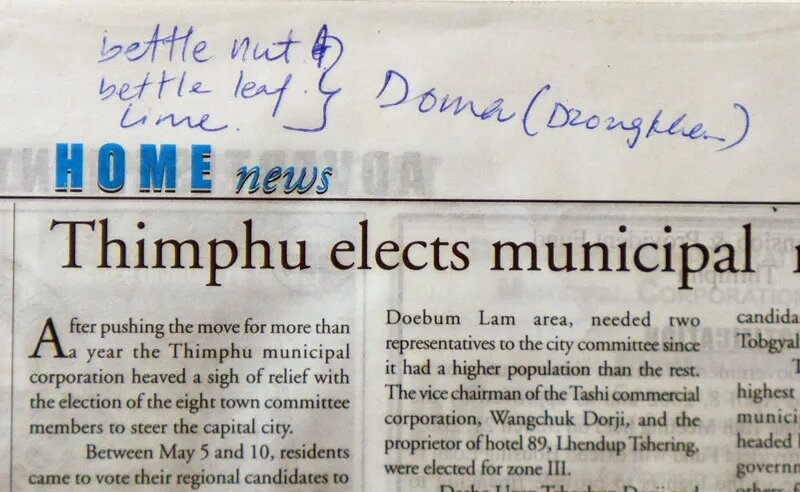 bettle nut
bettle leaf.
lime.
Doma (Dzongkha)
HOME news
Thimphu elects municipal
After pushing the move for more than
a year the Thimphu municipal
corporation heaved a sigh of relief with
the election of the eight town committee
members to steer the capital city.
Between May 5 and 10, residents
came to vote their regional candidates to
Doebum Lam area, needed two
representatives to the city committee since
it had a higher population than the rest.
The vice chairman of the Tashi commercial
corporation, Wangchuk Dorji, and the
proprietor of hotel 89, Lhendup Tshering,
were elected for zone III.
candida
Tobgyal
T
highest
municip
headed
governm